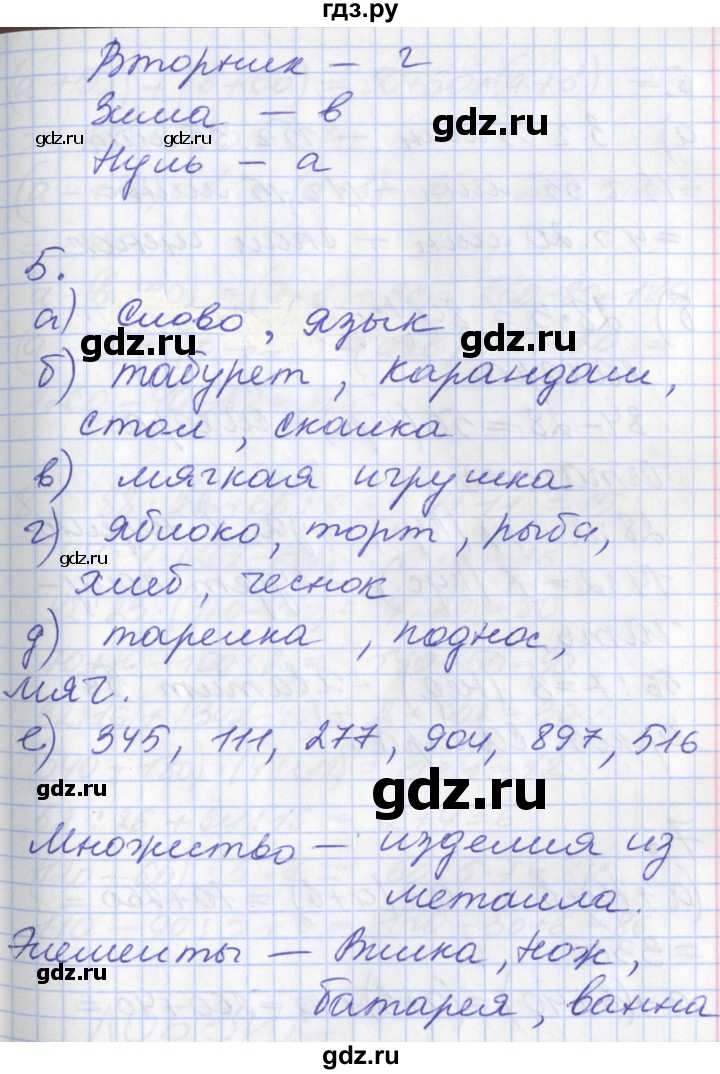 гдз.ру
Вторник – г
Зима – в
gdz.ru
gdz.ru
Нуль – а
5.
а) слово, язык
gdz.ru
gdz.ru
б) табурет, карандаш,
стол, скалка
в) мягкая игрушка
г) яблоко, торт, рыба,
gdz.ru
gdz.ru
хлеб, чеснок
д) тарелка, поднос,
мяч.
е) 345, 111, 277, 904, 897, 516
gdz.ru
gdz.ru
Множество – изделия из
металла.
Элементы – Вилка, нож,
gdz.ru
gdz.ru
батарея, ванна
gdz.ru